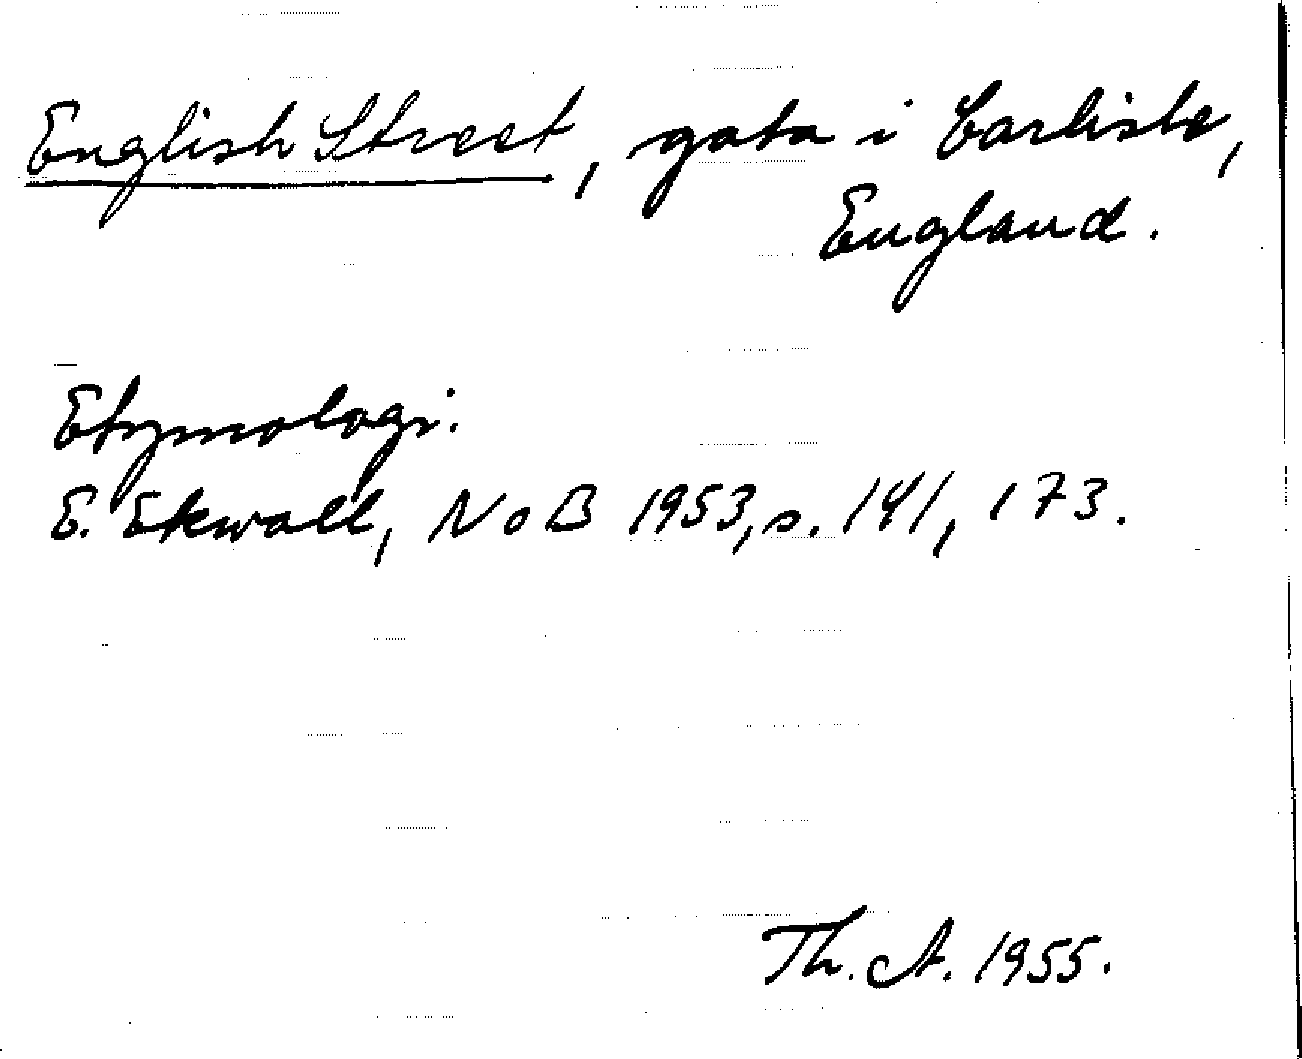 English Street, gata i Carlisle,
England.
Etymologi.
E. Ekwall, NoB 1953, s. 141, 173.
Th. A. 1955.